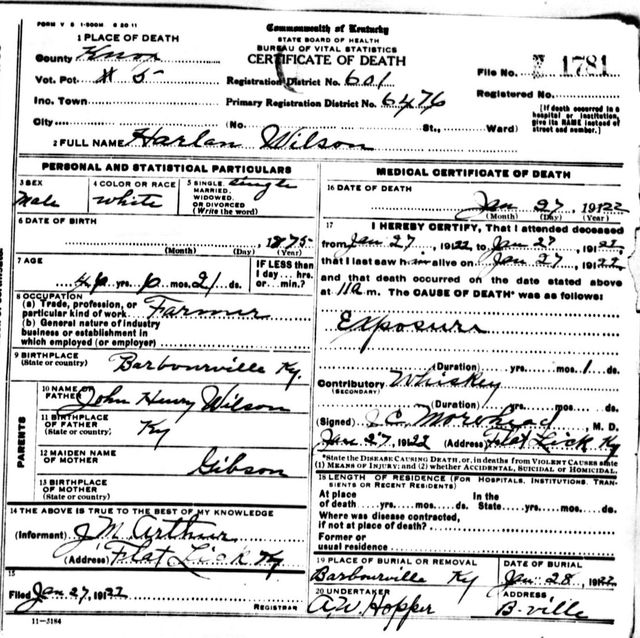 FORM V S 1-500M 8 20 11
Commonwealth of Kentucky
STATE BOARD OF HEALTH
BUREAU OF VITAL STATISTICS
CERTIFICATE OF DEATH
1 PLACE OF DEATH
County Knox
Vot. Pct # 5
Inc. Town
City
Registration District No. 601
Primary Registration District No. 6476
(No. St., Ward)
File No. 1781
Registered No.
[If death occurred in a hospital or institution, give its NAME instead of street and number.]
2 FULL NAME Harlan Wilson
PERSONAL AND STATISTICAL PARTICULARS
3 SEX Male
4 COLOR OR RACE White
5 SINGLE, MARRIED, WIDOWED, OR DIVORCED (Write the word) Single
6 DATE OF BIRTH 1875
(Month) (Day) (Year)
7 AGE 46 yrs. 6 mos. 21 ds.
IF LESS than 1 day... hrs. or... min.?
8 OCCUPATION
(a) Trade, profession, or particular kind of work Farmer
(b) General nature of industry business or establishment in which employed (or employer)
9 BIRTHPLACE (State or country) Barbourville Ky.
PARENTS
10 NAME OF FATHER John Henry Wilson
11 BIRTHPLACE OF FATHER (State or country) Ky
12 MAIDEN NAME OF MOTHER Gibson
13 BIRTHPLACE OF MOTHER (State or country)
14 THE ABOVE IS TRUE TO THE BEST OF MY KNOWLEDGE
(Informant) J.M. Arthur
(Address) Flat Lick Ky
15
Filed Jan 27, 1922
REGISTRAR
11-3184
MEDICAL CERTIFICATE OF DEATH
16 DATE OF DEATH
Jan 27, 1922
(Month) (Day) (Year)
17 I HEREBY CERTIFY, That I attended deceased
from Jan 27, 1922 to Jan 27, 1922,
that I last saw him alive on Jan 27, 1922
and that death occurred on the date stated above
at 11 a m. The CAUSE OF DEATH* was as follows:
Exposure
(Duration) yrs. mos. 1 ds.
Contributory Whiskey
(SECONDARY)
(Duration) yrs. mos. ds.
(Signed) Morehead, M. D.
Jan 27, 1922 (Address) Flat Lick Ky
*State the DISEASE CAUSING DEATH, or, in deaths from VIOLENT CAUSES state
(1) MEANS OF INJURY; and (2) whether ACCIDENTAL, SUICIDAL or HOMICIDAL.
18 LENGTH OF RESIDENCE (FOR HOSPITALS, INSTITUTIONS, TRANSIENTS OR RECENT RESIDENTS)
At place of death yrs. mos. ds. In the State yrs. mos. ds.
Where was disease contracted, if not at place of death?
Former or usual residence
19 PLACE OF BURIAL OR REMOVAL
Barbourville Ky
DATE OF BURIAL
Jan 28, 1922
20 UNDERTAKER
A.W. Hopper
ADDRESS
B-ville